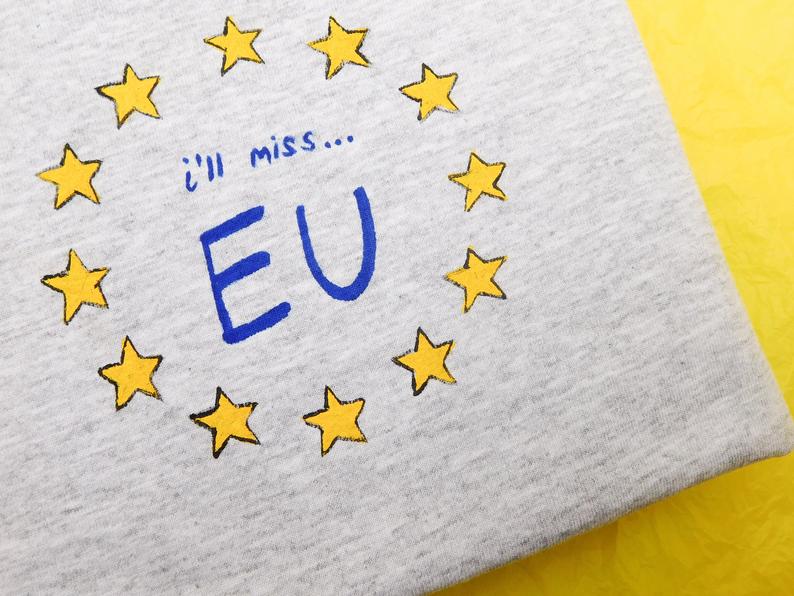 i'll miss...
EU